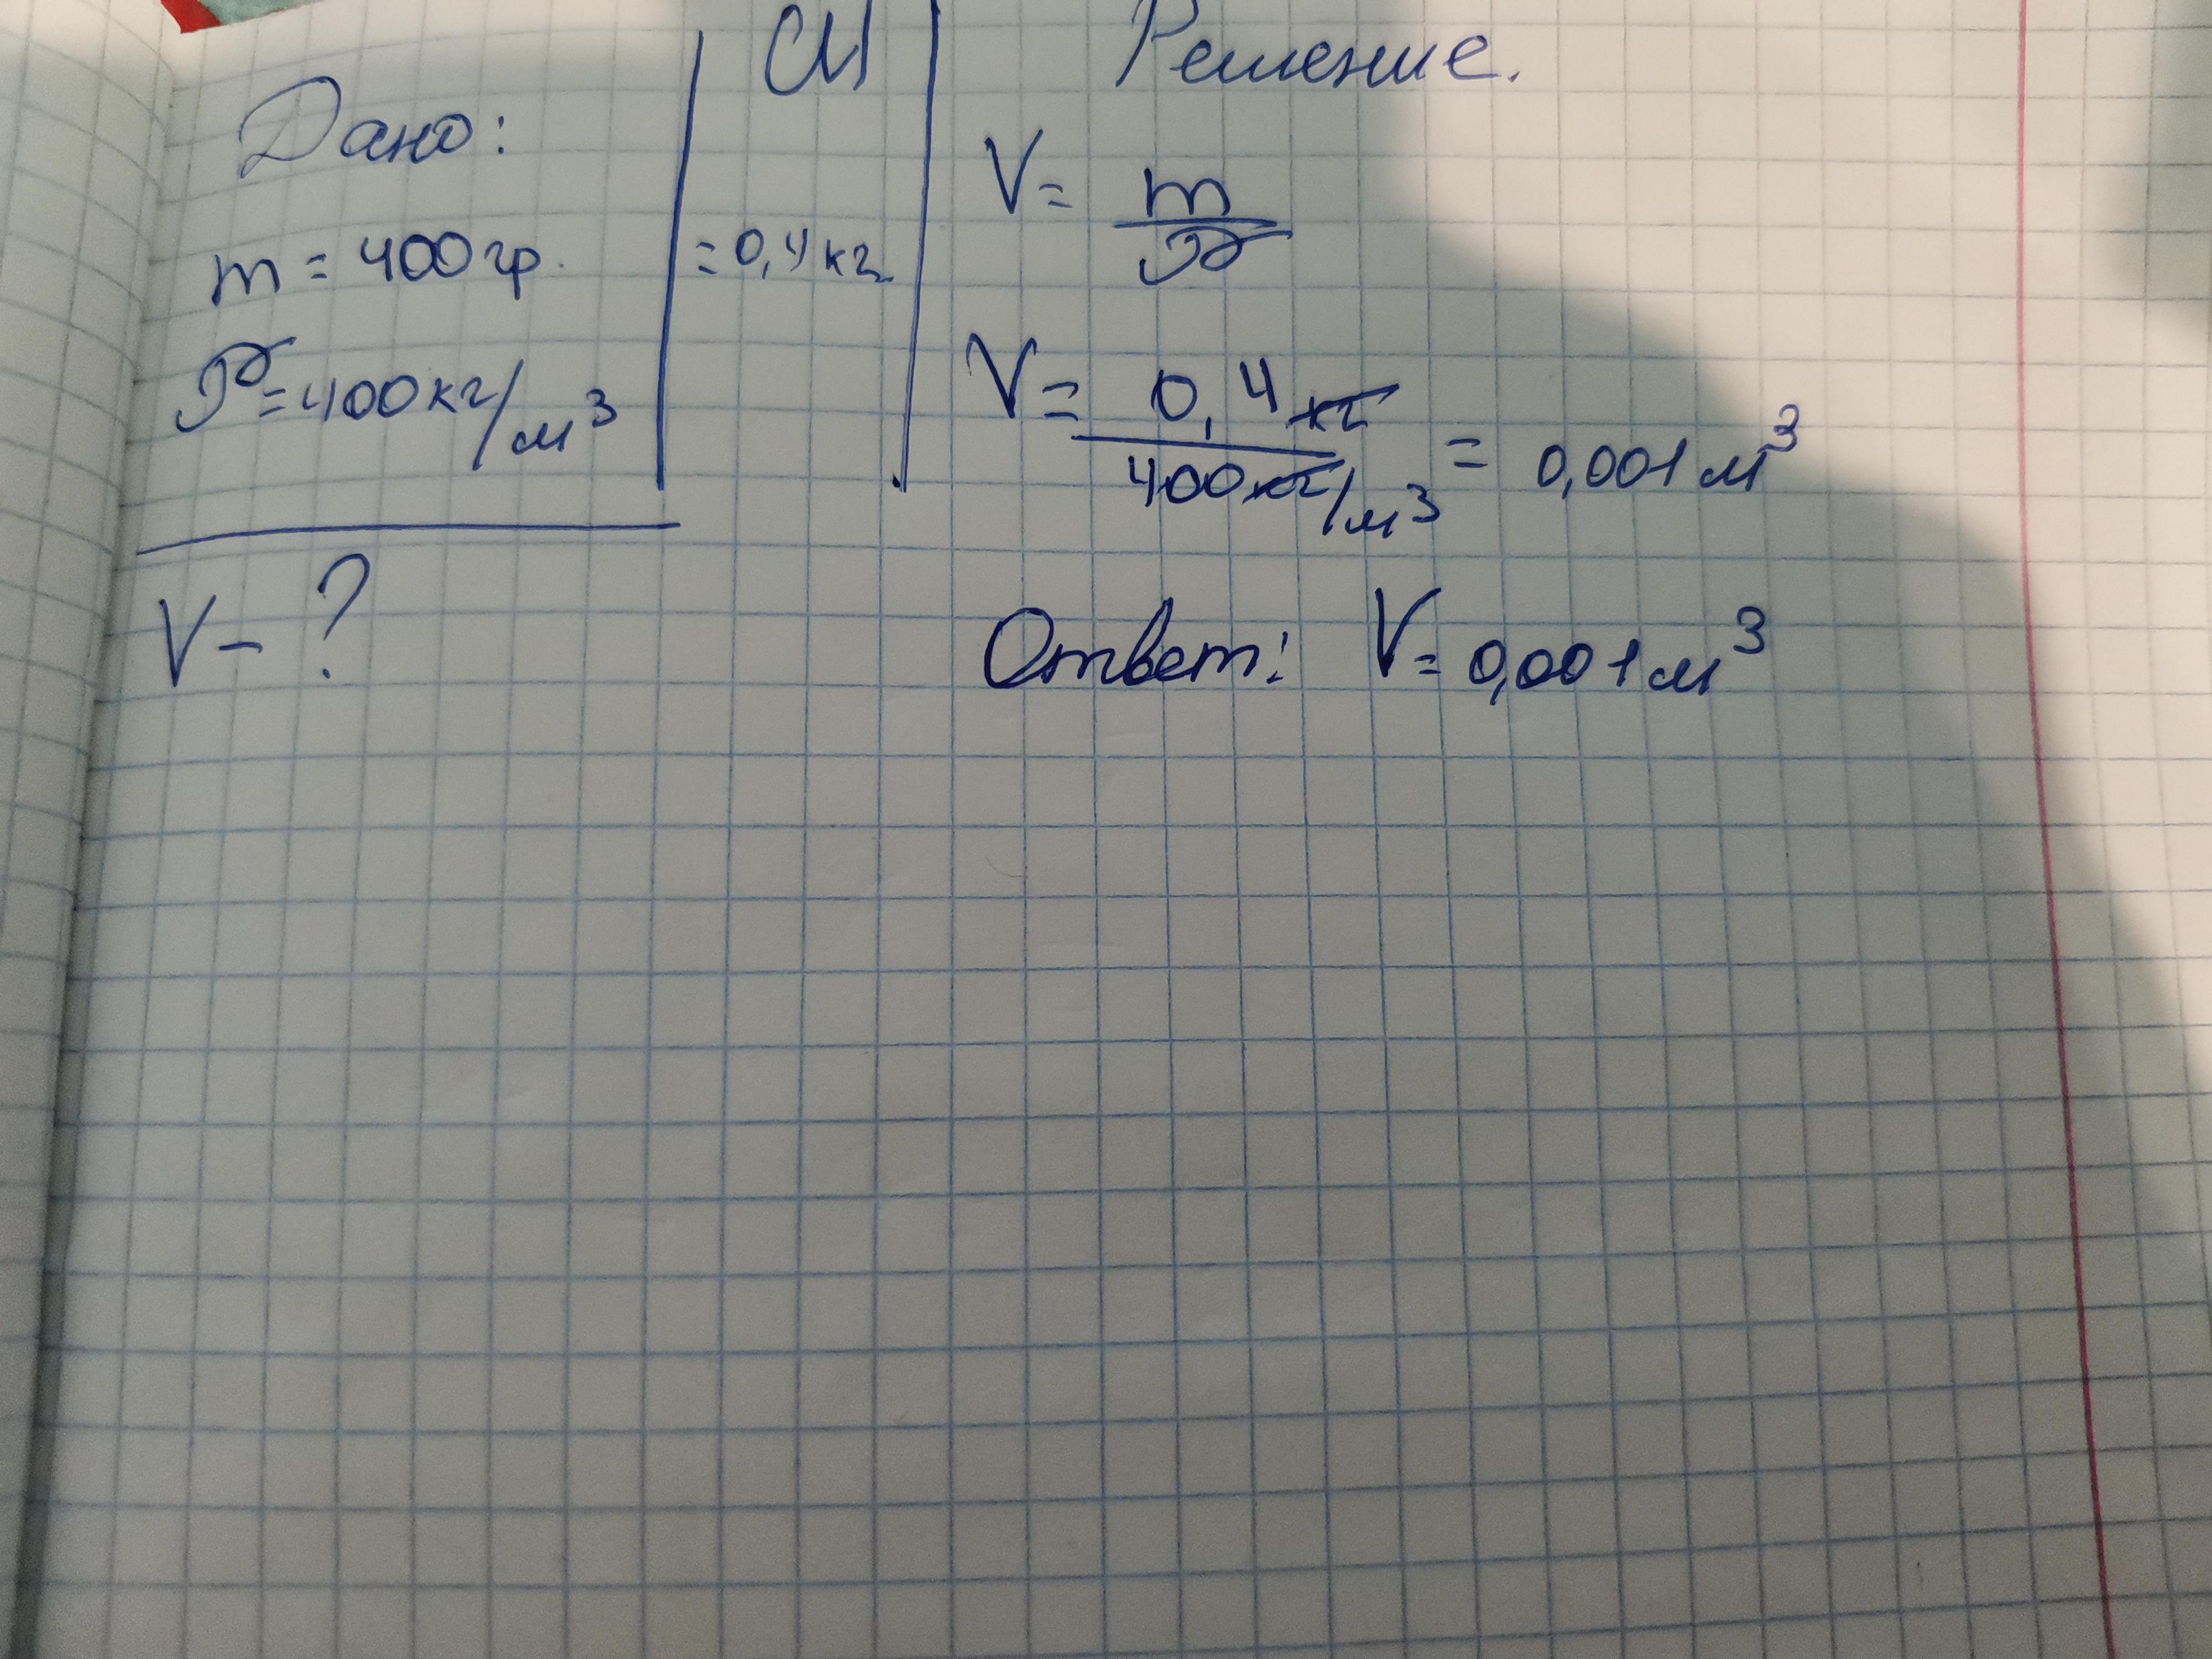 Дано:
m = 400гр.
P = 400кг/м³
V - ?
СИ
= 0,4 кг
Решение.
V = m/P
V = 0,4 кг / 400 кг/м³ = 0,001 м³
Ответ: V = 0,001 м³